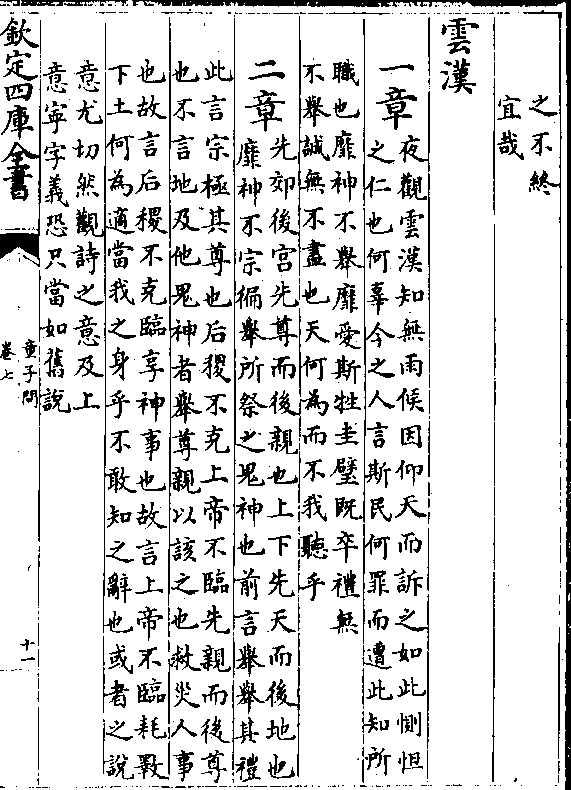 之不終
宜哉
雲漢
一章
夜觀雲漢知無雨候因仰天而訴之如此惻怛
之仁也何辜今之人言斯民何罪而遭此知所
職也靡神不舉靡愛斯牲圭璧既卒禮無
不舉誠無不盡也天何為而不我聽乎
二章
先郊後宮先尊而後親也上下先天而後地也
靡神不宗徧舉所祭之鬼神也前言舉舉其禮
此言宗極其尊也后稷不克上帝不臨先親而後尊
也不言地及他鬼神者舉尊親以該之也救災人事
也故言后稷不克臨享神事也故言上帝不臨耗斁
下土何為適當我之身乎不敢知之辭也或者之說
意尤切然觀詩之意及上
意寜字義恐只當如舊說
欽定四庫全書
童子問
卷七
十一